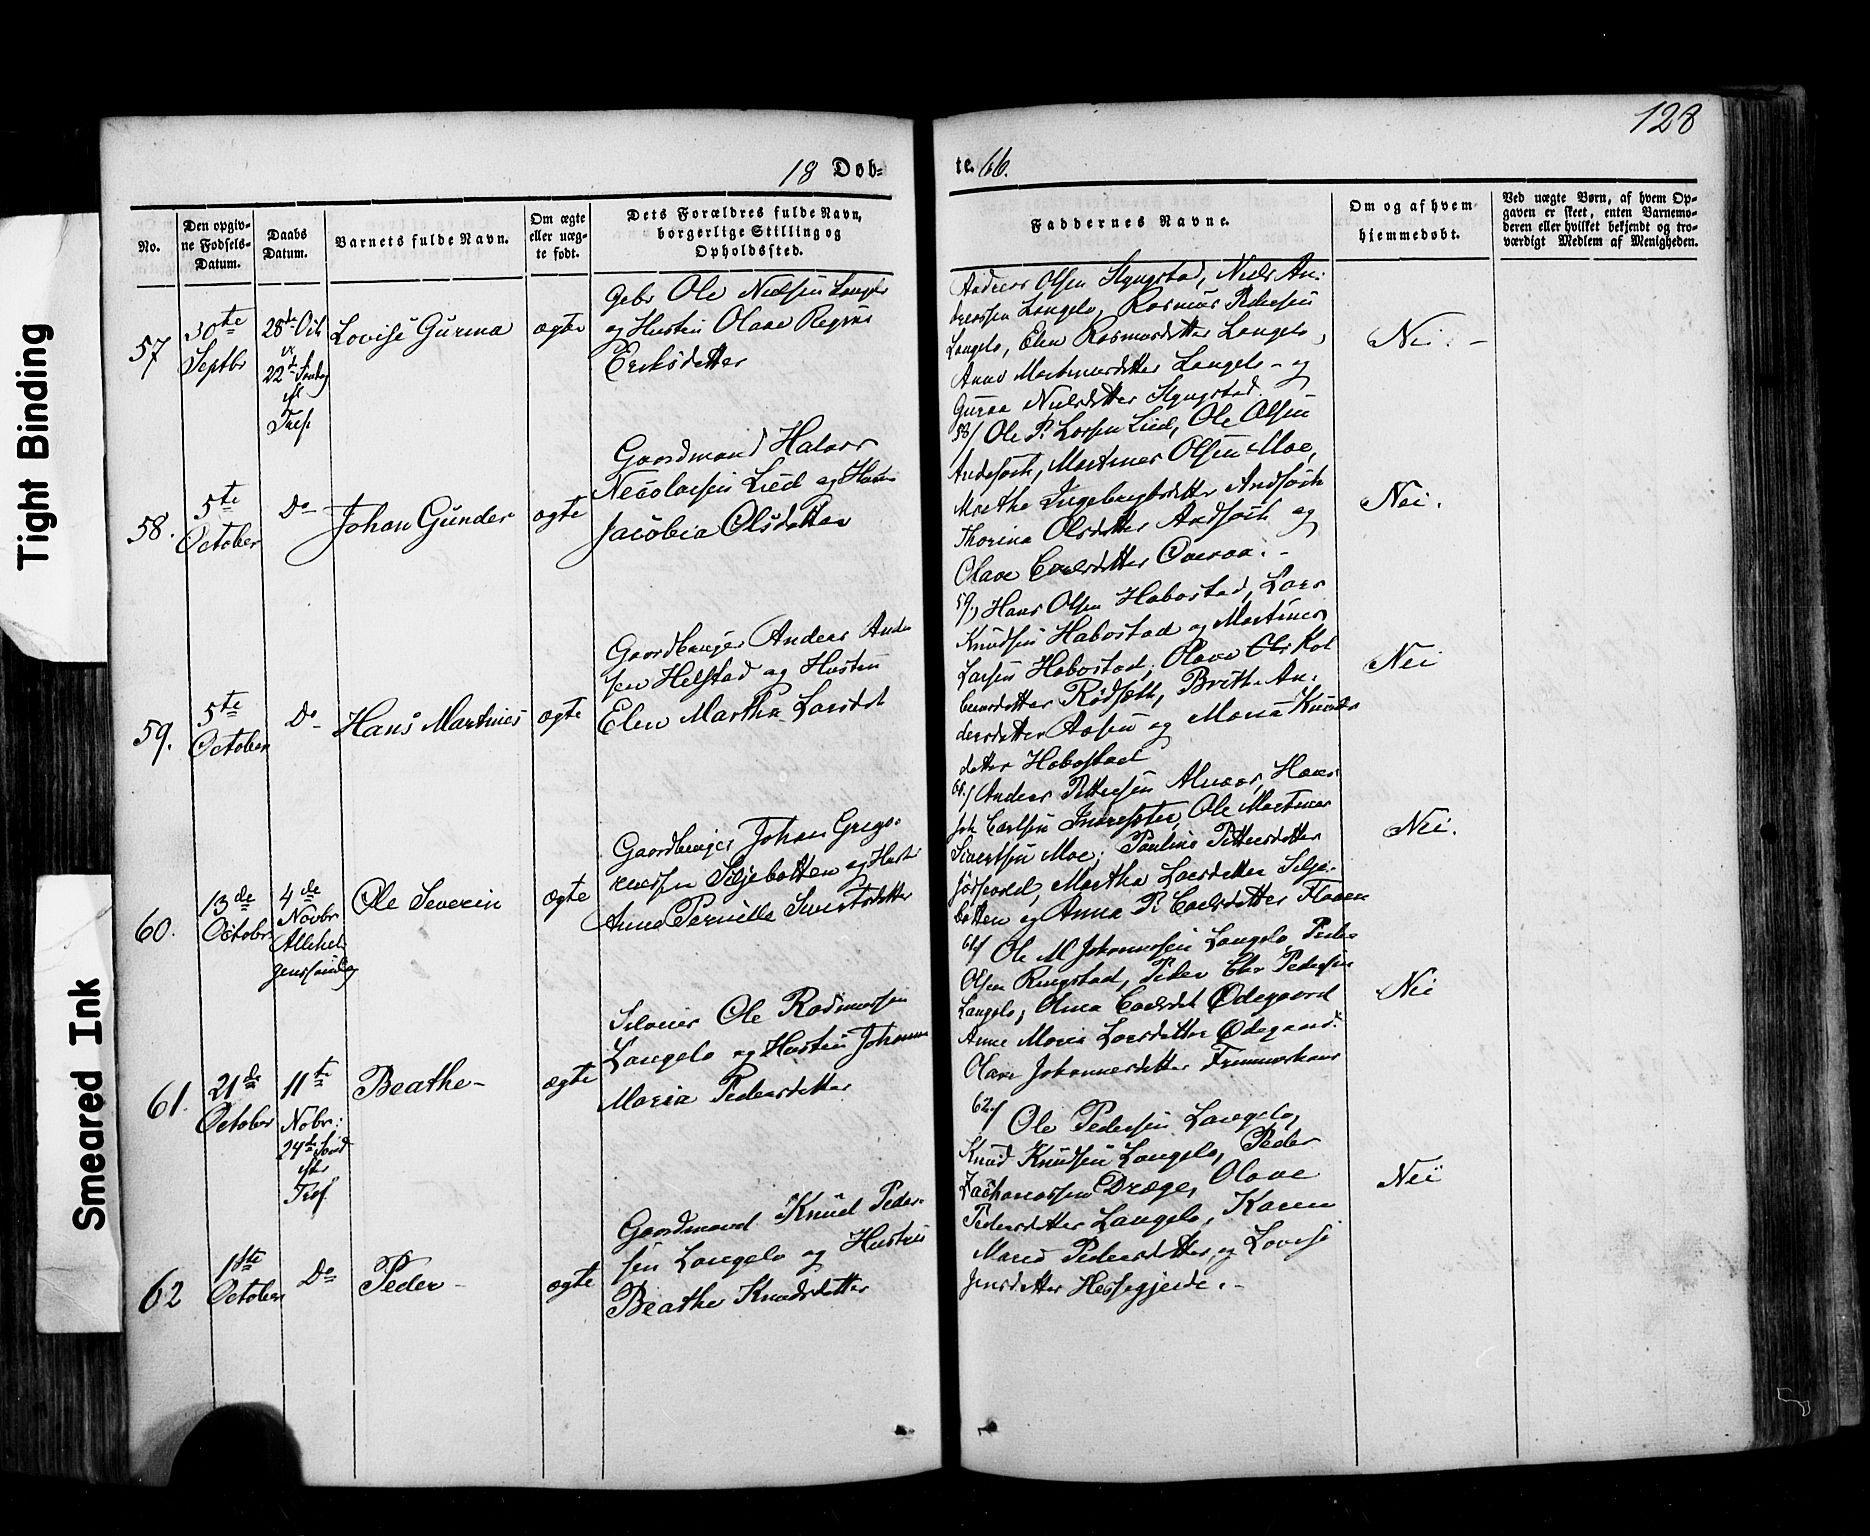 128
18 Døb=
te. 66.
No.
Den opgiv-
ne Fødsels-
Datum.
Daabs
Datum.
Barnets fulde Navn.
Om ægte
eller uæg-
te født.
Dets Forældres fulde Navn,
borgerlige Stilling og
Opholdssted.
Faddernes Navne.
Om og af hvem
hjemmedøbt.
Ved uægte Børn, af hvem Op-
gaven er skeet, enten Barnemo-
deren eller hvilket bekjendt og tro-
værdigt Medlem af Menigheden.
57
30te
Septbr
28de Oct
22de Søndag
eft
Tref
Lovise Gurina
ægte
Gebr Ole Nielsen Langlo
og Hustru Olave Regine
Eriksdatter
Andreas Olsen Ryngstad, Niels An-
dreassen Langlo, Rasmus Pedersen
Langlo, Elen Rasmusdatter Langlo,
Anne Martinusdatter Langlo - og
Gurina Nielsdatter Ryngstad
Nei. -
58.
5te
October
Do
Johan Gunder
ægte
Gaardmand Halvor
Nicolaisen Lied og Hustru
Jacobia Olsdatter
58/ Ole P. Larsen Lied, Ole Olsen
Andsøsth, Martinus Olsen Moe,
Marthe Ingebrigtsdatter Andsøsth
Thorina Olsdatter Andsøsth og
Olave Carlsdatter Overaa. -
Nei.
59.
5te
October
Do
Hans Martines
ægte
Gaardbruger Anders Ander
sen Helstad og Hustru
Elen Martha Larsdat
59./ Hans Olsen Habostad, Lars
Knudsen Habostad og Martinus
Larsen Habostad, Olava Ols Kol
beensdatter Rødseth, Brith An-
dersdatter Aasen og Maria Knuds
datter Habostad
Nei
60.
13de
October
4de
Novbr
Allehel-
genssøndag
Ole Severin
ægte
Gaardbruger Johan Grego-
riussen Siljebotten og Hustr
Anne Pernille Sivertsdatter
60./ Anders Pettersen Alvaar, Hans
Joh Carlsen Indreflæte, Ole Martinus
Sivertsen Moe, Pauline Pettersdatter
Martha Larsdatter Silje-
botten og Anna P. Carlsdatter Flaaen
Nei.
61.
21de
October
11te
Nobr:
24de Sønd
efter
Tref
Beathe -
ægte
Selveier Ole Rasmussen
Langelo og Hustru Johanne
Maria Pedersdatter
61/ Ole M Johannesen Langelo, Peder
Olsen Ringstad, Peder Elias Pedersen
Langelo, Olina Carlsdat Ødegaard
Anne Maria Larsdatter Ødegaard.
Olave Johannesdatter Fremmerhaug
Nei
62
1ste
October
Do
Peder -
ægte
Gaardmand Knud Peder-
sen Langelo og Hustru
Beathe Knudsdatter
62./ Ole Pedersen Langelo,
Knud Knudsen Langelo, Peder
Zachariassen Drage, Olave
Pedersdatter Langelo, Karen
Marie Pedersdatter og Lovise
Jensdatter Hessegjerde. -
Nei
Tight Binding
Smeared Ink